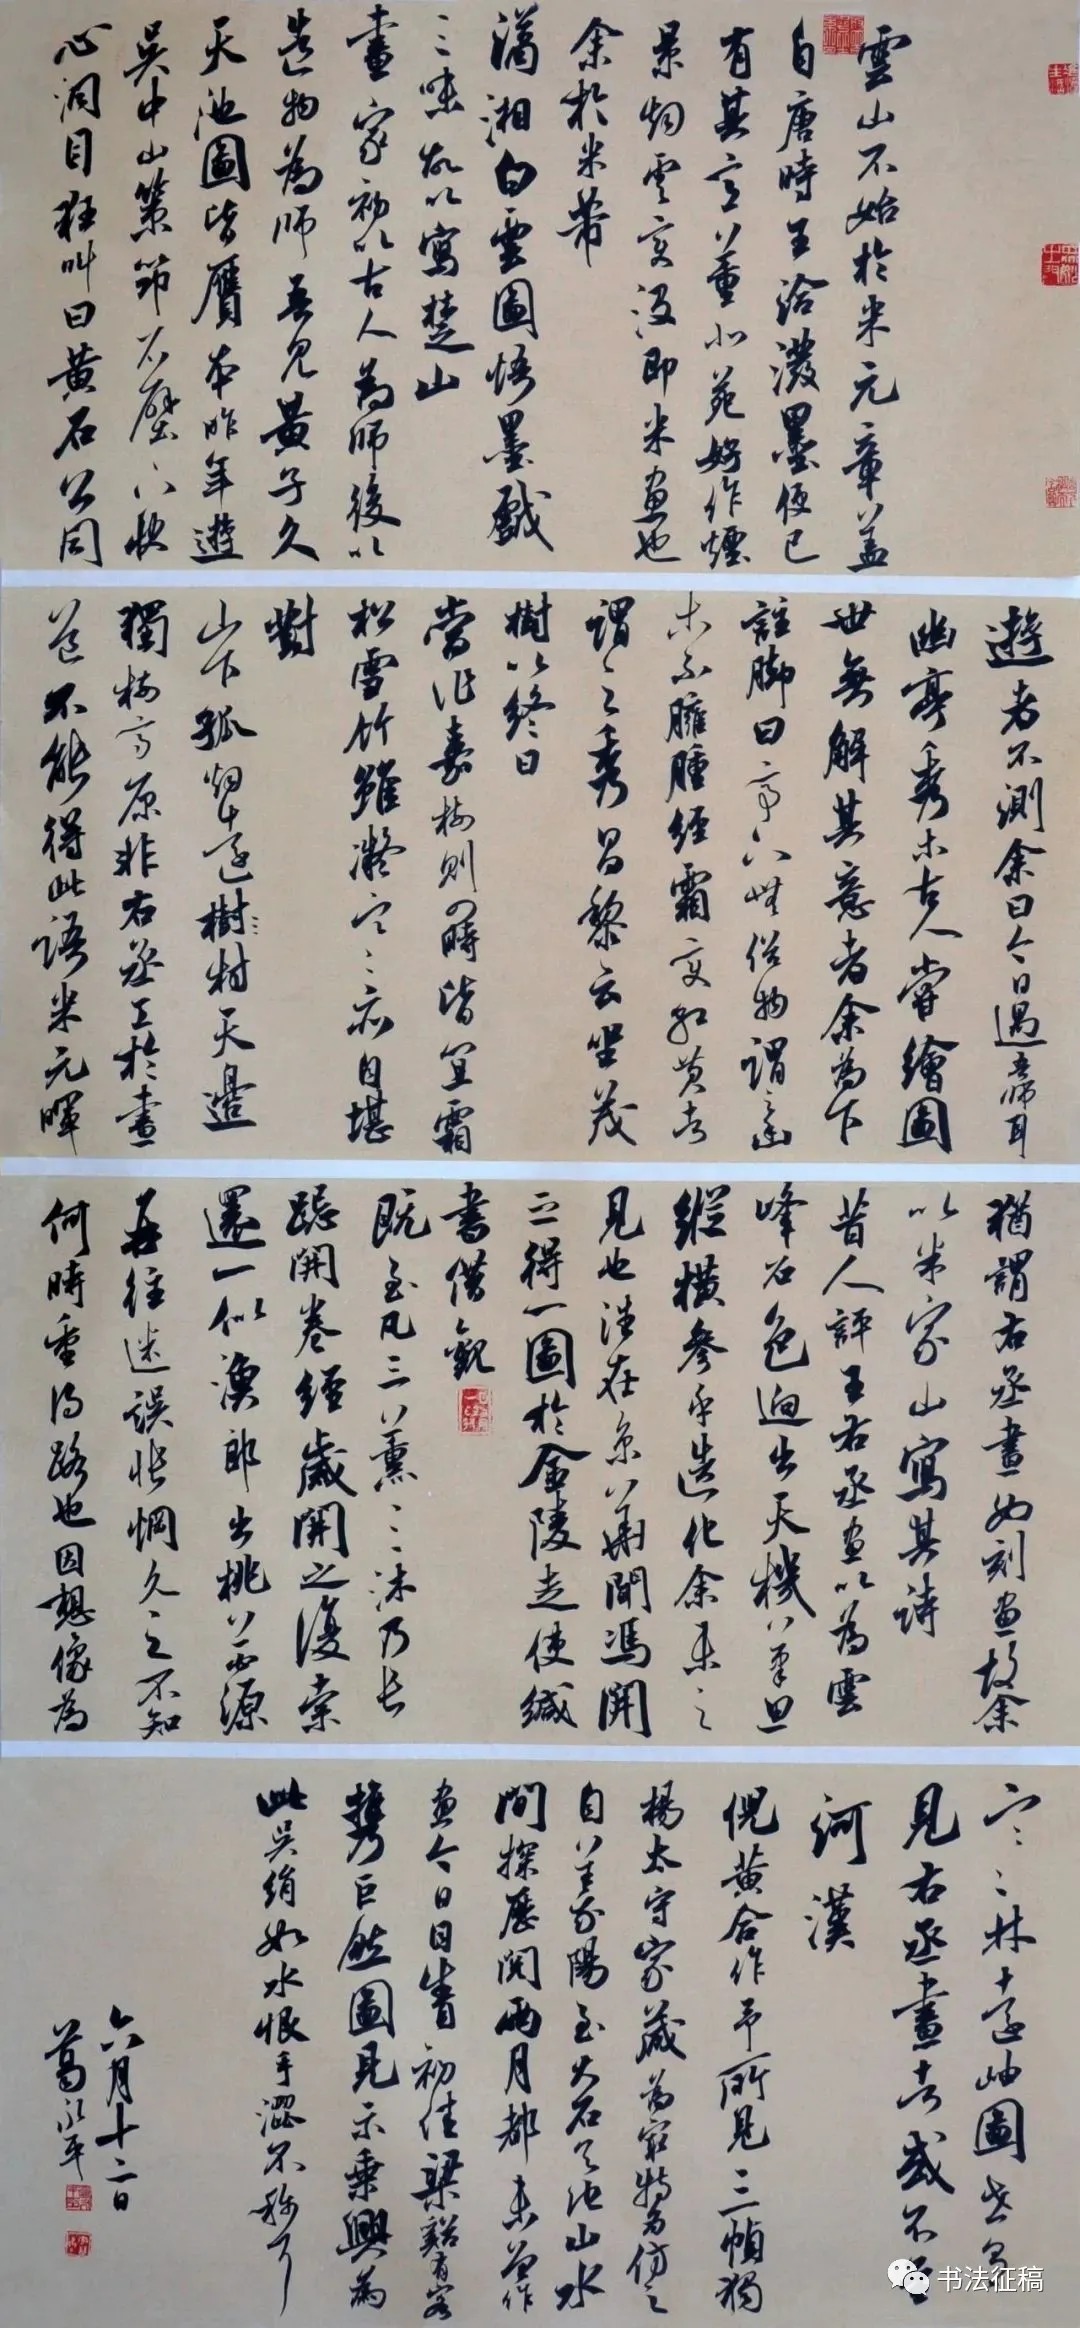 雲山不始於米元章蓋
自唐時王洽潑墨便已
有其意董北苑好作煙
景烟雲變沒即米畫也
余於米芾
瀟湘白雲圖悟墨戲
三昧故以寫楚山
畫家初以古人為師後以
造物為師吾見黃子久
天池圖皆贗本昨年遊
吳中山策筇石壁下快
心洞目狂叫曰黃石公同
遊者不測余曰今日遇吾師耳
幽亭秀木古人嘗繪圖
世無解其意者余為下
註腳曰亭下無俗物謂之幽
木不臃腫經霜變紅黃者
謂之秀昌黎云坐茂
樹以終日
當作嘉樹則四時皆宜霜
松雪竹雖凝寒亦自堪
對
山下孤烟遠村天邊
獨樹高原非右丞工於畫
道不能得此語米元暉
猶謂右丞畫如刻畫故余
以米家山寫其詩
昔人評王右丞畫以為雲
峰石色迥出天機筆思
縱橫參乎造化余未之
見也往在京華聞馮開
之得一圖於金陵走使緘
書借觀
既至凡三薰三沐乃長
跽開卷經歲開之復索
還一似漁郎出桃花源
再往迷誤悵惘久之不知
何時重得路也因想像為
寒林遠岫圖世有
見右丞畫者或不至
河漢
倪黃合作吊所見三幀獨
楊太守家藏為最特為仿之
自荊陽至大石天池山水
間探歷閱兩月都未曾作
畫今日目眚初佳梁谿有客
攜巨然圖見示乘興為
此吳絹如水恨手澀不稱耳
六月十二日
葛永平
書法征稿